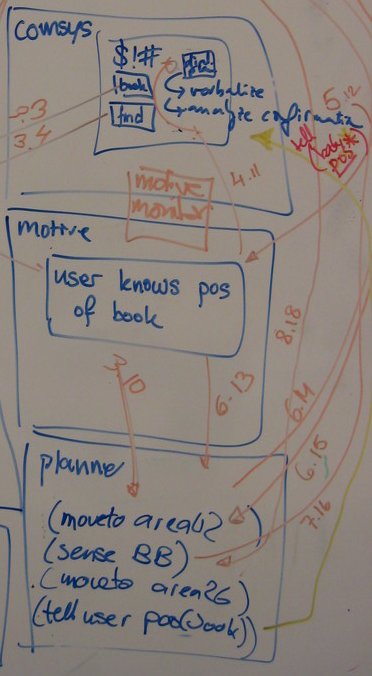 comsys
$!#
book
verbalize
find
analyze confirmation
3.4
5.12
tell
pos
4.11
motive
monitor
motive
user knows pos
of book
3.10
6.13
8.18
6.14
6.15
7.16
planner
(moveto area12 )
(sense BB)
(moveto area26)
(tell user pos(book))